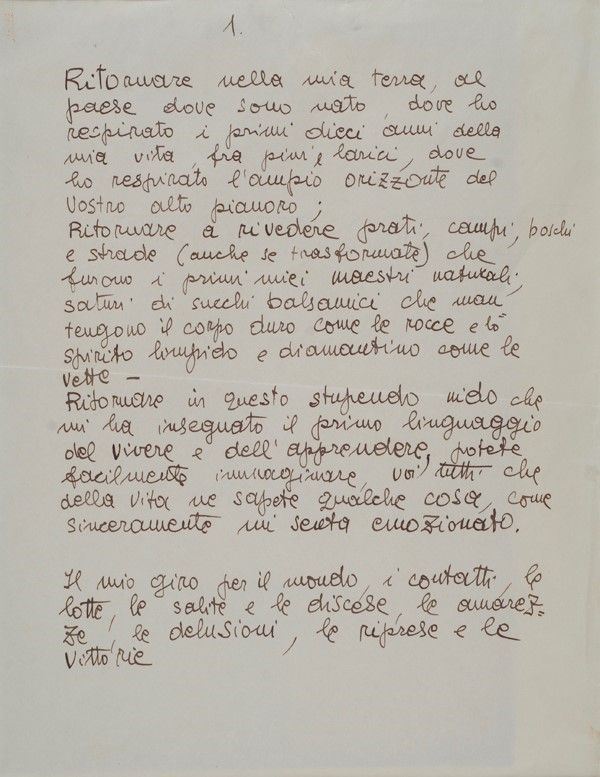 1.
Ritornare nella mia terra, al
paese dove sono nato, dove ho
respirato i primi dieci anni della
mia vita, fra pini e larici, dove
ho respirato l'ampio orizzonte del
vostro alto pianoro;
Ritornare a rivedere prati, campi, boschi
e strade (anche se trasformate) che
furono i primi miei maestri naturali,
saturi di succhi balsamici che man
tengono il corpo duro come le rocce e lo
spirito limpido e diamantino come le
vette —
Ritornare in questo stupendo nido che
mi ha insegnato il primo linguaggio
del vivere e dell'apprendere, potete
facilmente immaginare, voi tutti che
della vita ne sapete qualche cosa, come
sinceramente mi senta emozionato.
Il mio giro per il mondo, i contatti, le
lotte, le salite e le discese, le amarez-
ze, le delusioni, le riprese e le
vittorie